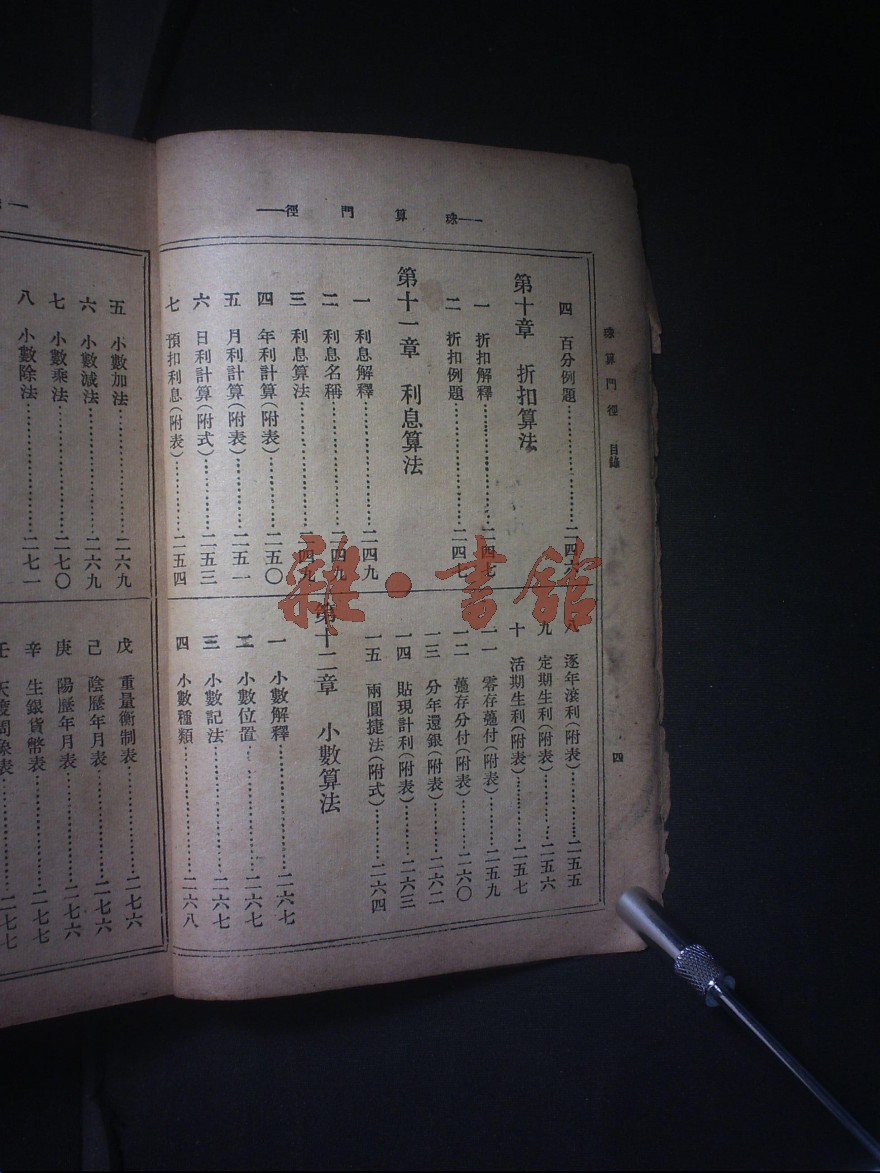 珠算門徑
珠算門徑 目錄
四
四 百分例題…………二四六
第十章 折扣算法
一 折扣解釋…………二四七
二 折扣例題…………二四七
第十一章 利息算法
一 利息解釋…………二四九
二 利息名稱…………二四九
三 利息算法…………二四九
四 年利計算(附表)…………二五〇
五 月利計算(附表)…………二五一
六 日利計算(附式)…………二五三
七 預扣利息(附表)…………二五四
八 逐年滾利(附表)…………二五五
九 定期生利(附表)…………二五六
十 活期生利(附表)…………二五七
一一 零存躉付(附表)…………二五九
一二 躉存分付(附表)…………二六〇
一三 分年還銀(附表)…………二六二
一四 貼現計利(附表)…………二六三
一五 兩圓捷法(附式)…………二六四
第十二章 小數算法
一 小數解釋…………二六七
二 小數位置…………二六七
三 小數記法…………二六七
四 小數種類…………二六八
五 小數加法…………二六九
六 小數減法…………二六九
七 小數乘法…………二七〇
八 小數除法…………二七一
戊 重量衡制表…………二七六
己 陰歷年月表…………二七六
庚 陽歷年月表…………二七六
辛 生銀貨幣表…………二七七
壬 天度周象表…………二七七
雜·書館